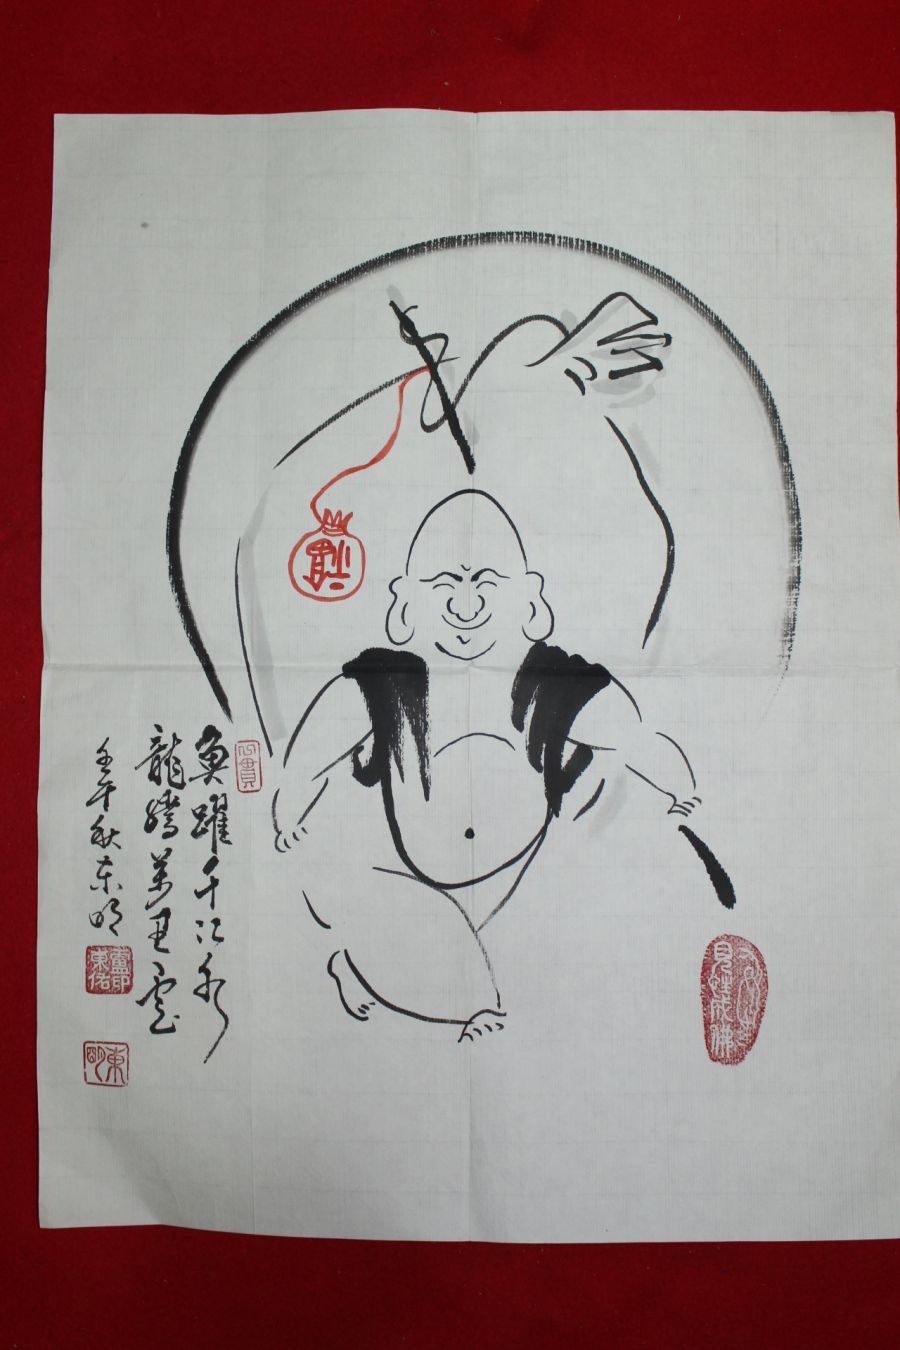 魚躍千江水
龍騰萬里雲
壬午秋 东明
心貫
東明
見性成佛